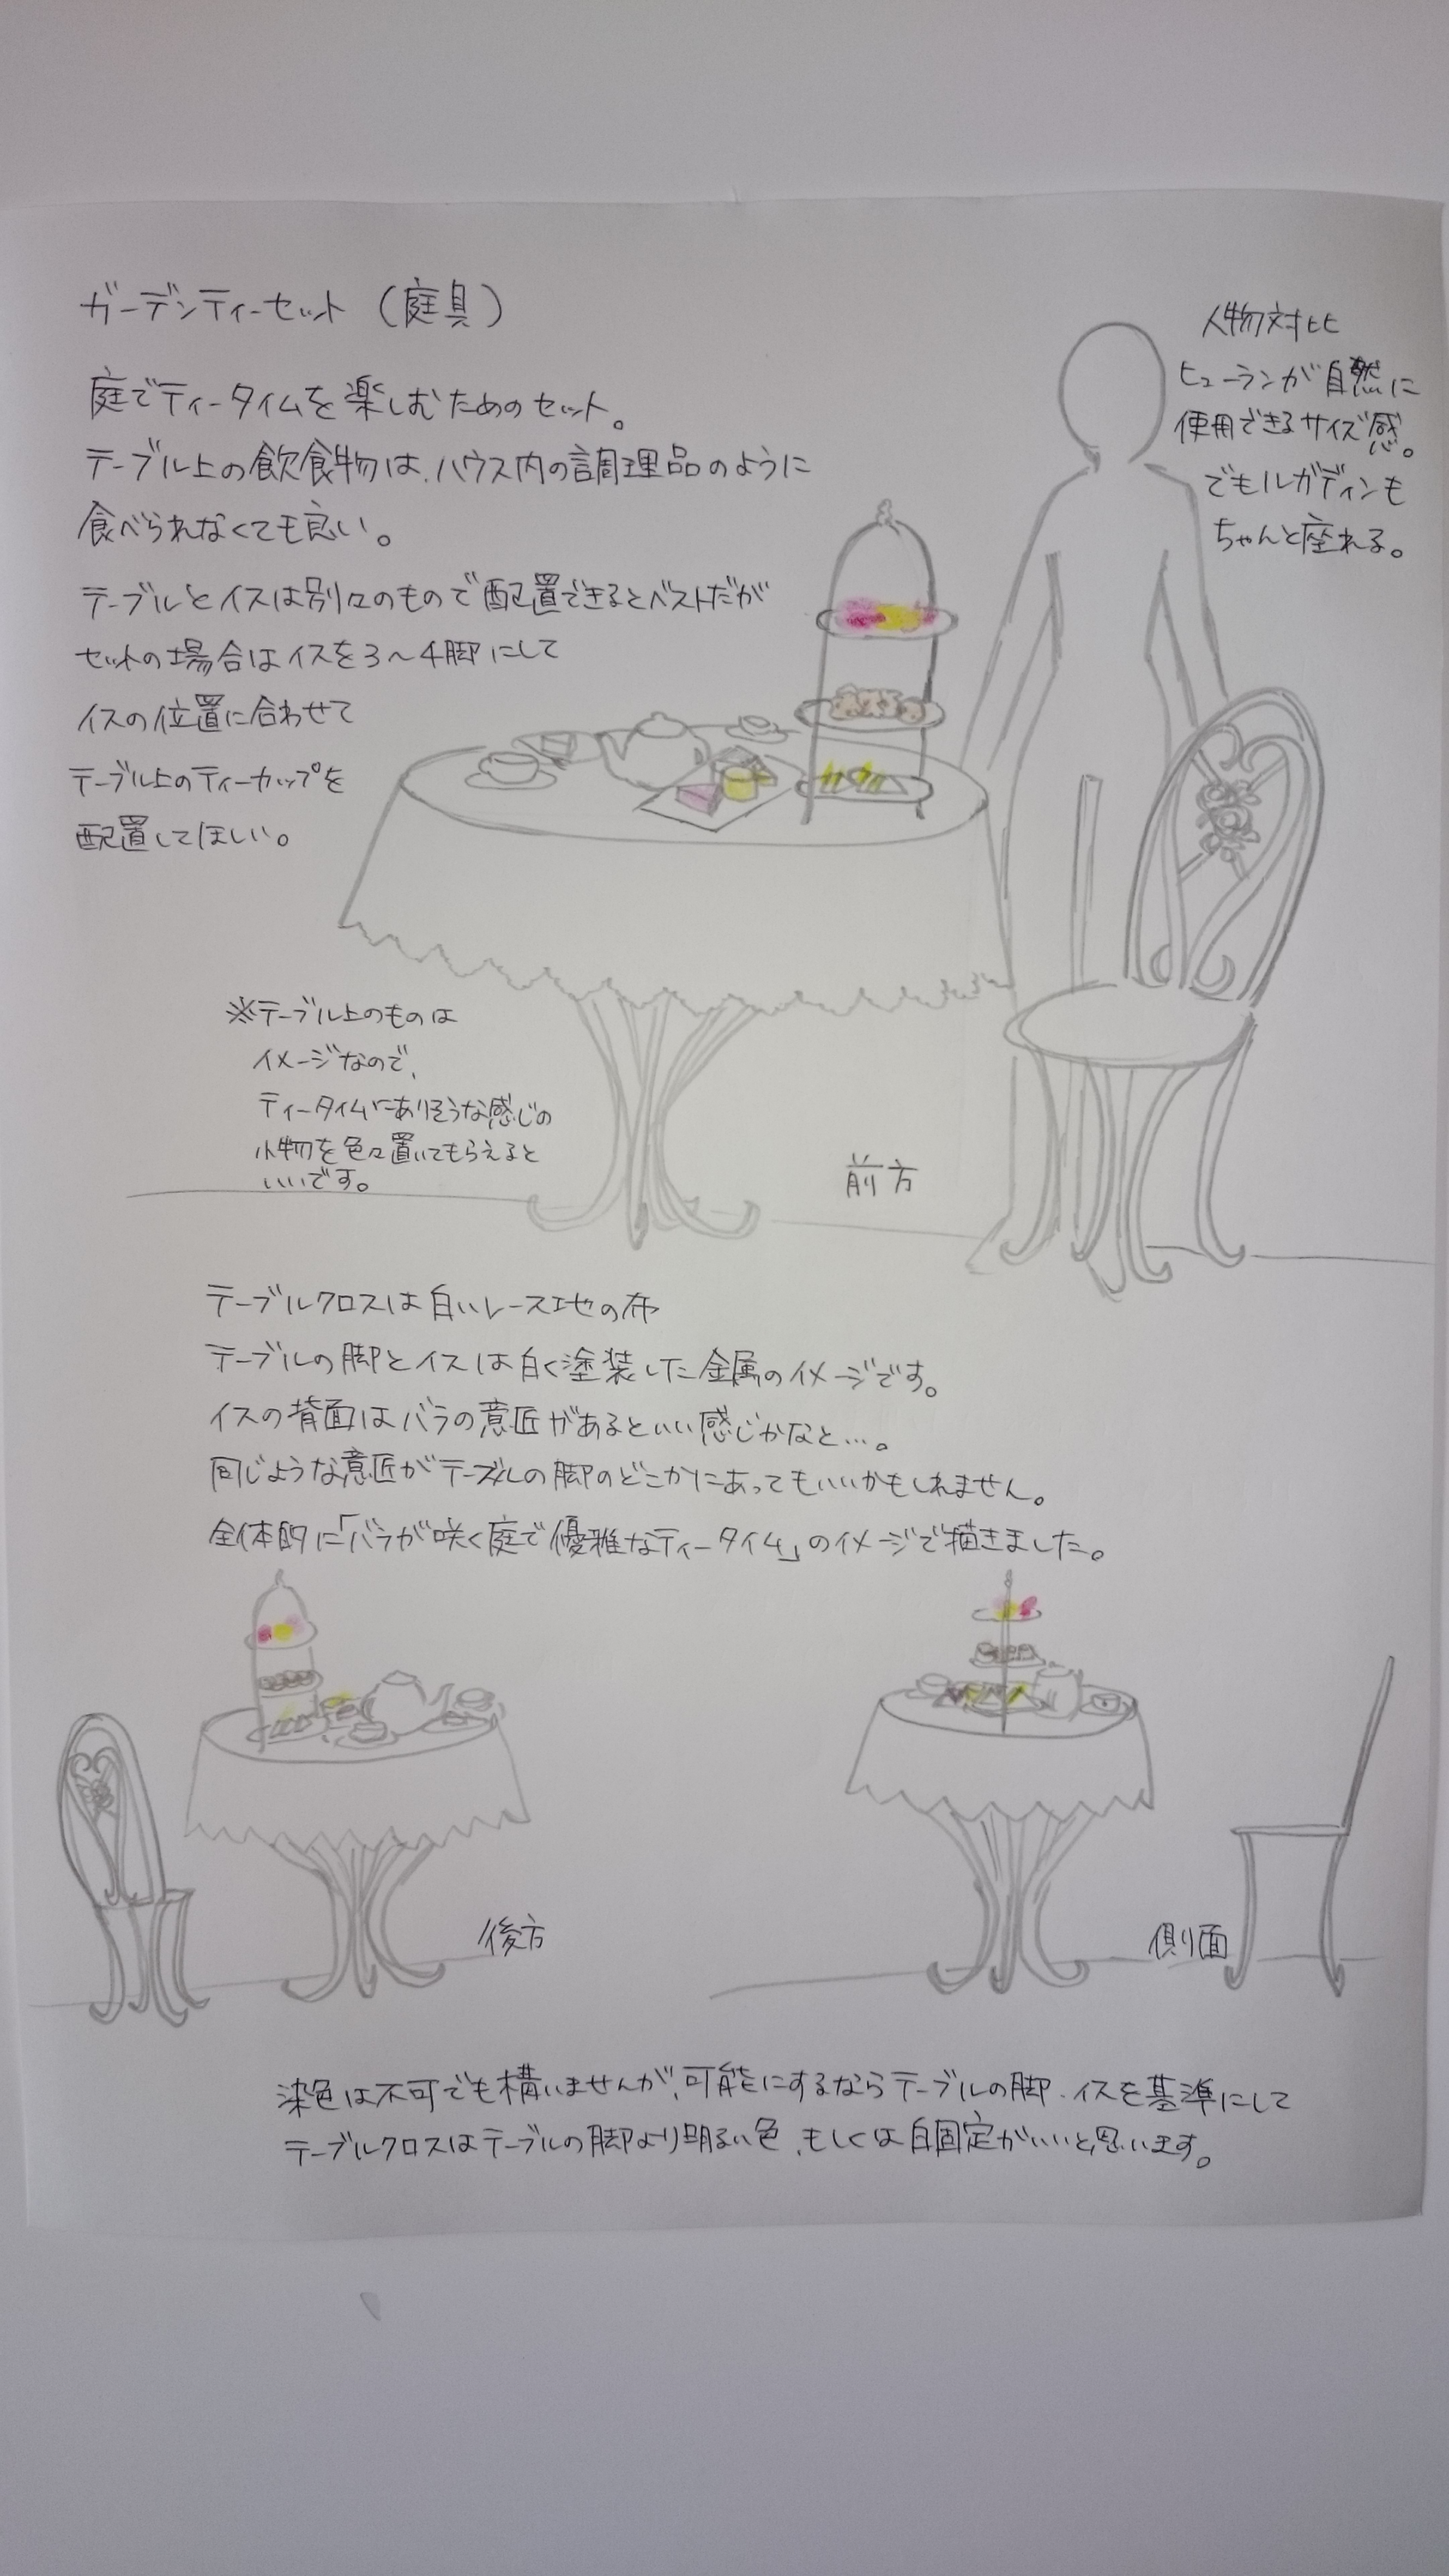 ガーデンティーセット（庭具）
庭でティータイムを楽しむためのセット。
テーブル上の飲食物は、ハウス内の調理品のように
食べられなくても良い。
テーブルとイスは別々のもので配置できるとベストだが
セットの場合はイスを3～4脚にして
イスの位置に合わせて
テーブル上のティーカップを
配置してほしい。
人物対比
ヒューランが自然に
使用できるサイズ感。
でもルガディンも
ちゃんと座れる。
※テーブル上のものは
イメージなので、
ティータイムにありそうな感じの
小物を色々置いてもらえると
いいです。
前方
テーブルクロスは白いレース地の布
テーブルの脚とイスは白く塗装した金属のイメージです。
イスの背面はバラの意匠があるといい感じかなと…。
同じような意匠がテーブルの脚のどこかにあってもいいかもしれません。
全体的に「バラが咲く庭で優雅なティータイム」のイメージで描きました。
後方
側面
染色は不可でも構いませんが、可能にするならテーブルの脚・イスを基準にして
テーブルクロスはテーブルの脚より明るい色、もしくは白固定がいいと思います。